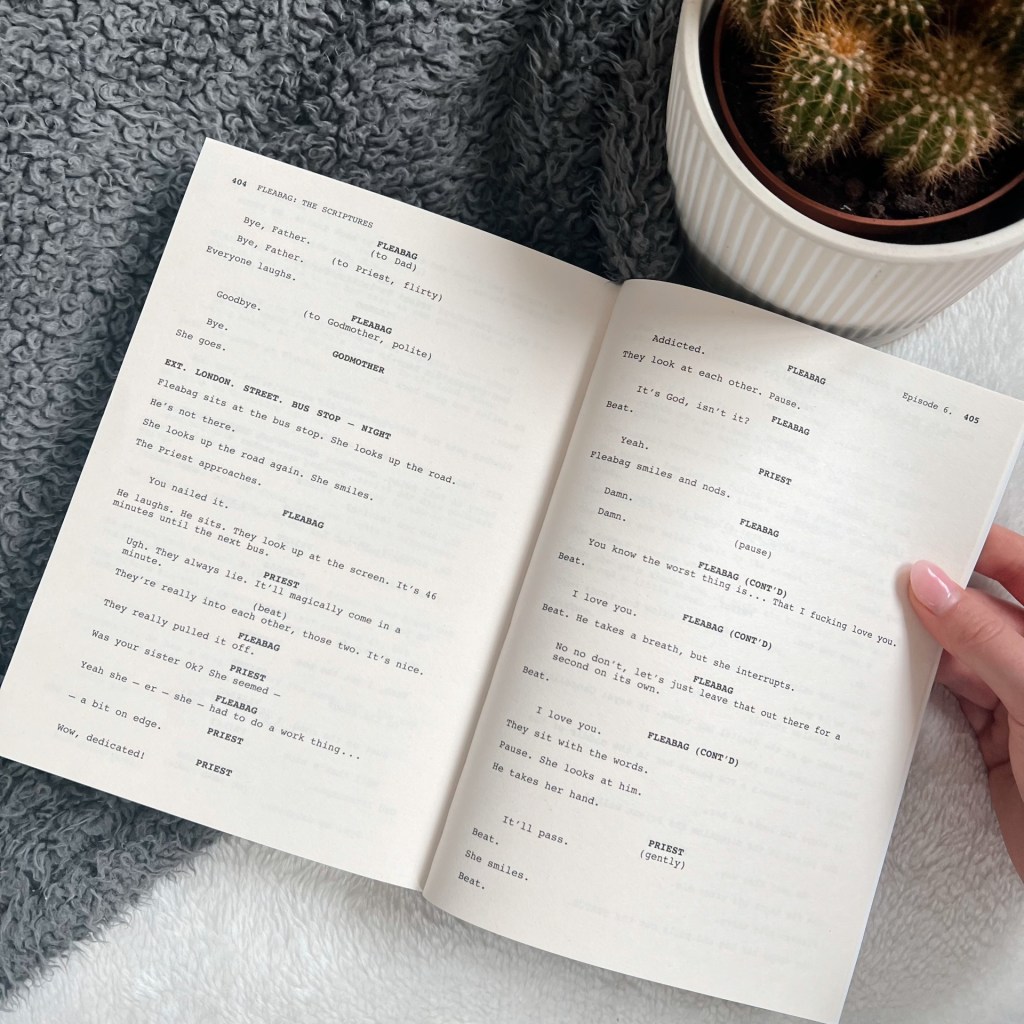 404 FLEABAG: THE SCRIPTURES
FLEABAG
(to Dad)
Bye, Father.
(to Priest, flirty)
Bye, Father.
Everyone laughs.
FLEABAG
(to Godmother, polite)
Goodbye.
GODMOTHER
Bye.
She goes.
EXT. LONDON. STREET. BUS STOP — NIGHT
Fleabag sits at the bus stop. She looks up the road.
He's not there.
She looks up the road again. She smiles.
The Priest approaches.
FLEABAG
You nailed it.
He laughs. He sits. They look up at the screen. It's 46
minutes until the next bus.
PRIEST
Ugh. They always lie. It'll magically come in a
minute.
(beat)
They're really into each other, those two. It's nice.
FLEABAG
They really pulled it off.
PRIEST
Was your sister Ok? She seemed —
FLEABAG
Yeah she — er — she — had to do a work thing...
PRIEST
— a bit on edge.
PRIEST
Wow, dedicated!
Episode 6. 405
FLEABAG
Addicted.
They look at each other. Pause.
FLEABAG
It's God, isn't it?
Beat.
PRIEST
Yeah.
Fleabag smiles and nods.
FLEABAG
Damn.
(pause)
Damn.
FLEABAG (CONT'D)
You know the worst thing is... That I fucking love you.
Beat.
FLEABAG (CONT'D)
I love you.
Beat. He takes a breath, but she interrupts.
FLEABAG
No no don't, let's just leave that out there for a
second on its own.
Beat.
FLEABAG (CONT'D)
I love you.
They sit with the words.
Pause. She looks at him.
He takes her hand.
PRIEST
(gently)
It'll pass.
Beat.
She smiles.
Beat.